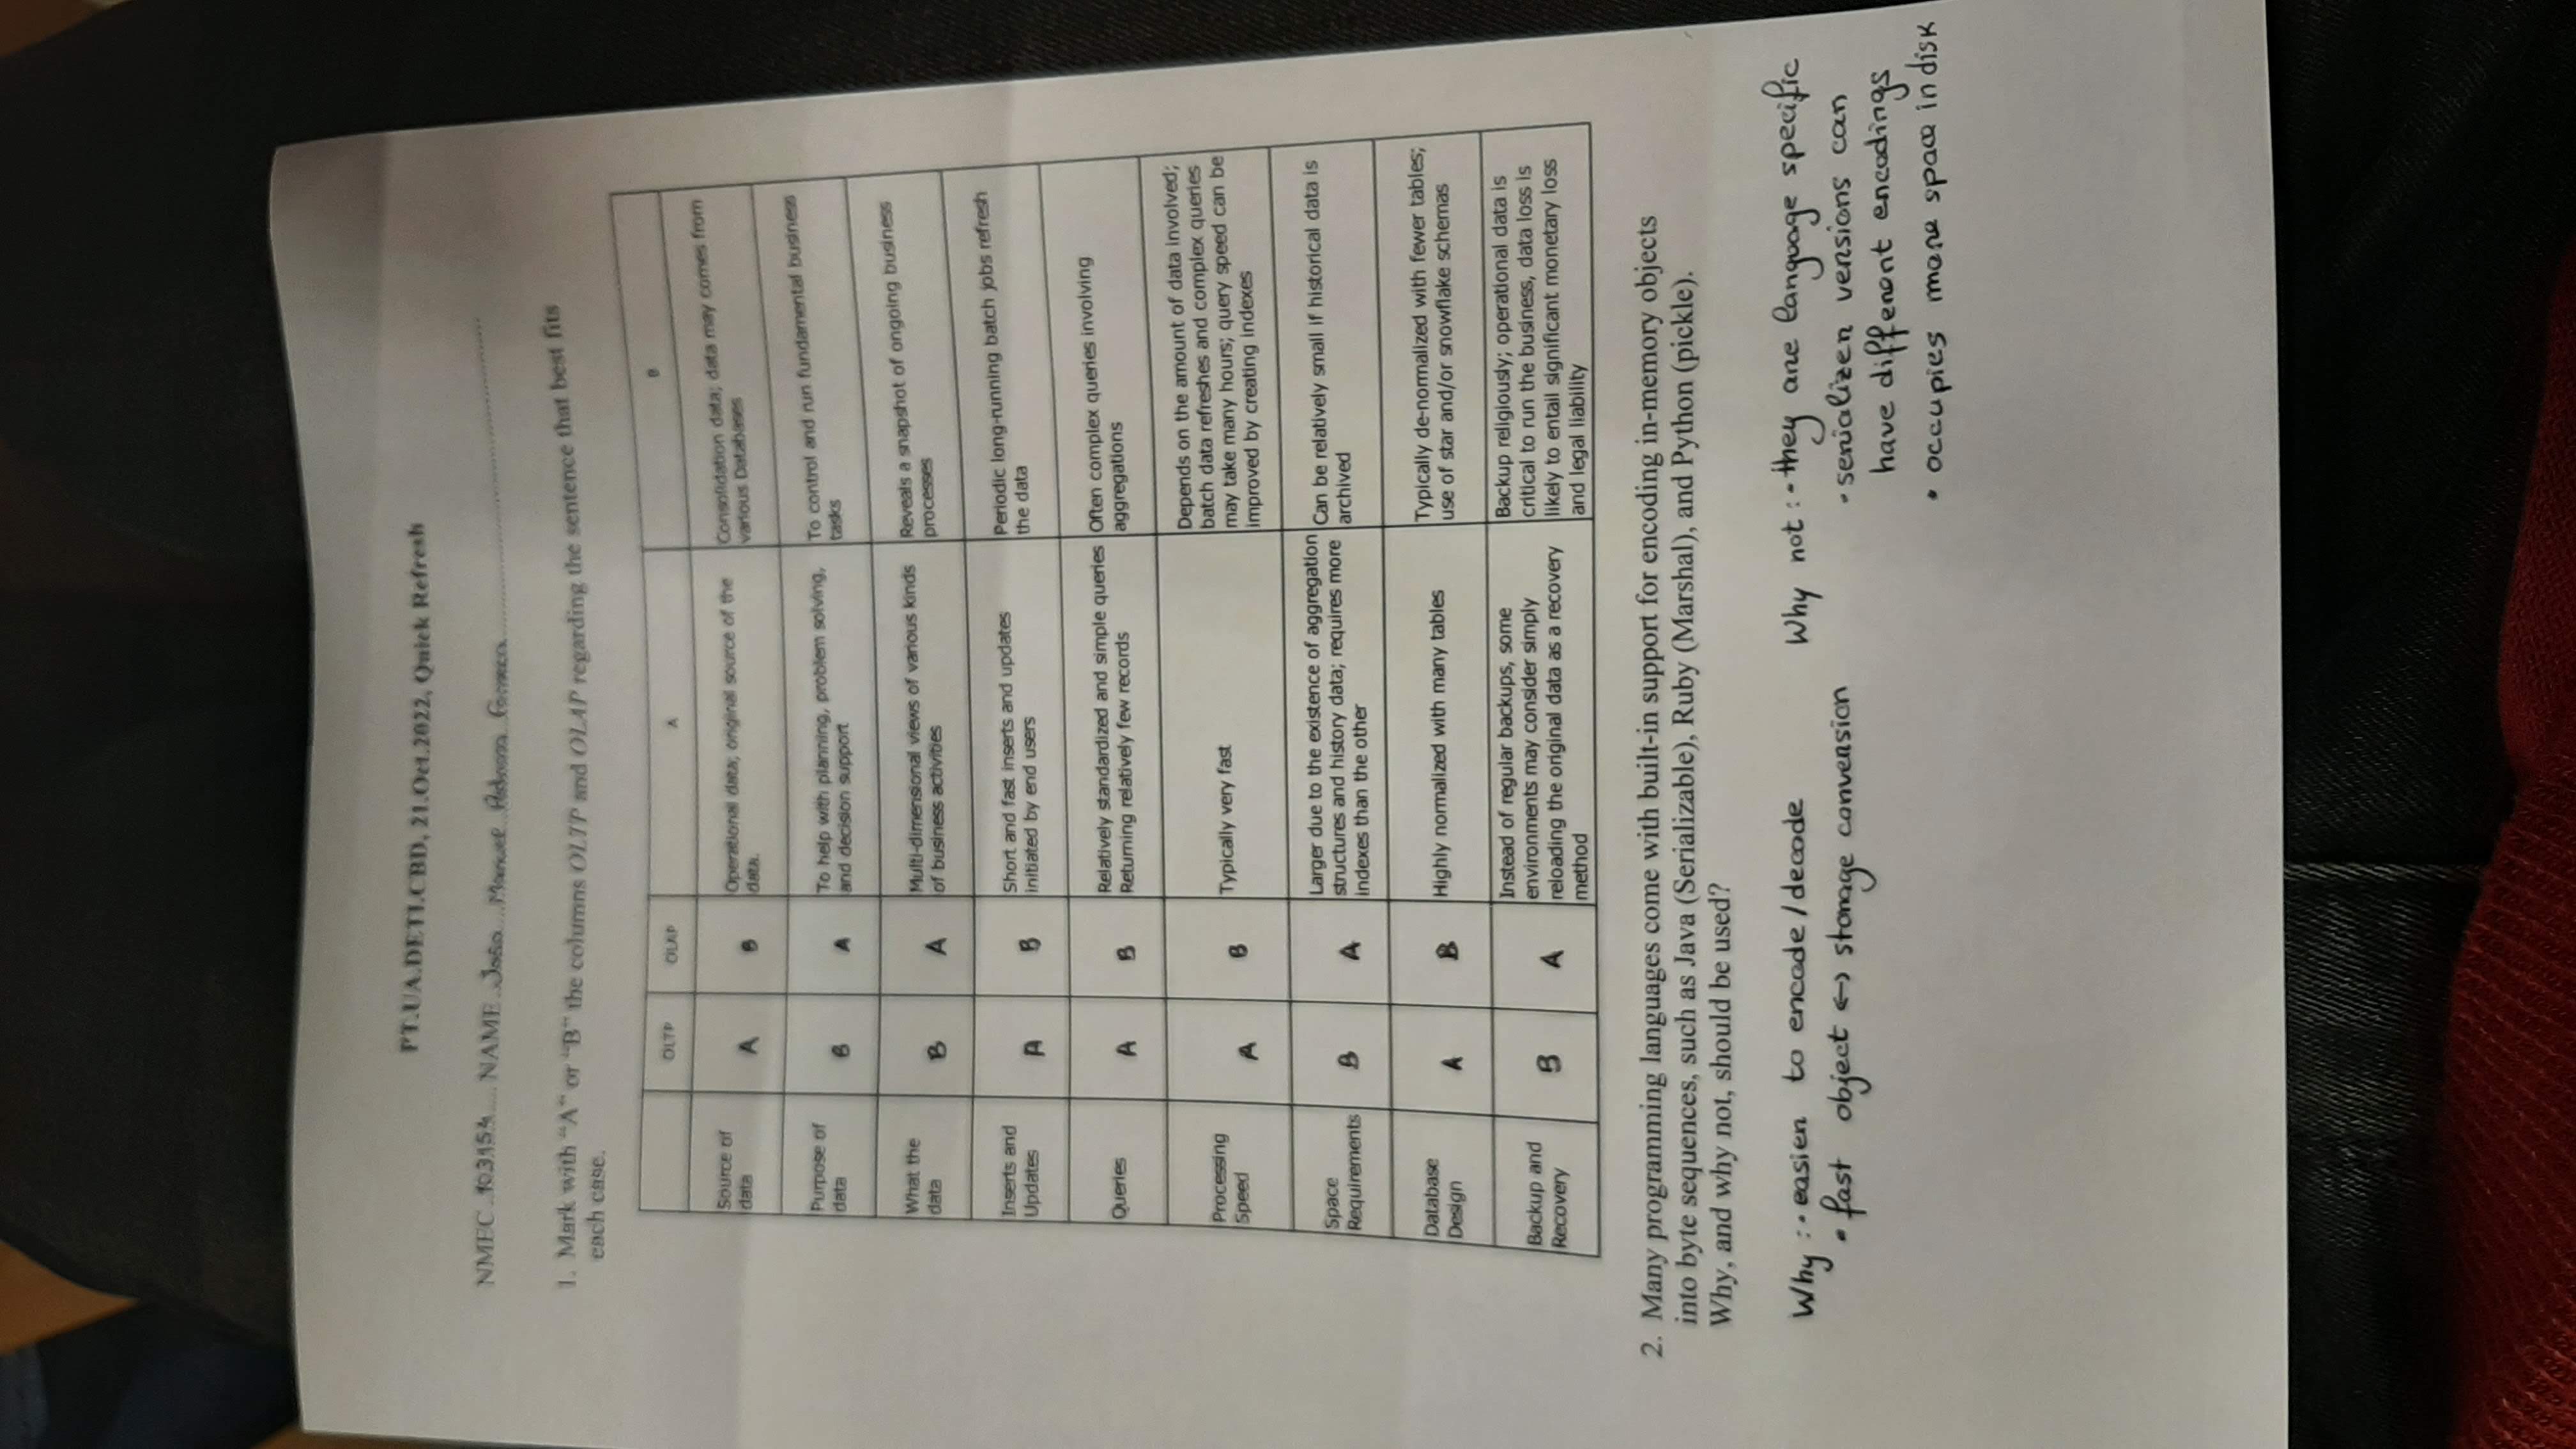 PT.UA.DETI.CBD, 21.Oct.2022, Quick Refresh
NMEC 103154 NAME João Manuel
1. Mark with "A" or "B" the columns OLTP and OLAP regarding the sentence that best fits
each case.
OLTP OLAP A B
Source of
data
A B
Operational data; original source of the
data.
Consolidation data; data may comes from
various Databases
Purpose of
data
B A
To help with planning, problem solving,
and decision support
To control and run fundamental business
tasks
What the
data
B A
Multi-dimensional views of various kinds
of business activities
Reveals a snapshot of ongoing business
processes
Inserts and
Updates
A B
Short and fast inserts and updates
initiated by end users
Periodic long-running batch jobs refresh
the data
Queries
A B
Relatively standardized and simple queries
Returning relatively few records
Often complex queries involving
aggregations
Processing
Speed
A B
Typically very fast
Depends on the amount of data involved;
batch data refreshes and complex queries
may take many hours; query speed can be
improved by creating indexes
Space
Requirements
B A
Larger due to the existence of aggregation
structures and history data; requires more
indexes than the other
Can be relatively small if historical data is
archived
Database
Design
A B
Highly normalized with many tables
Typically de-normalized with fewer tables;
use of star and/or snowflake schemas
Backup and
Recovery
B A
Instead of regular backups, some
environments may consider simply
reloading the original data as a recovery
method
Backup religiously; operational data is
critical to run the business, data loss is
likely to entail significant monetary loss
and legal liability
2. Many programming languages come with built-in support for encoding in-memory objects
into byte sequences, such as Java (Serializable), Ruby (Marshal), and Python (pickle).
Why, and why not, should be used?
Why : • easier to encode / decode
• fast object <-> storage conversion
Why not : • they are language specific
• serializer versions can
have different encodings
• occupies more space in disk